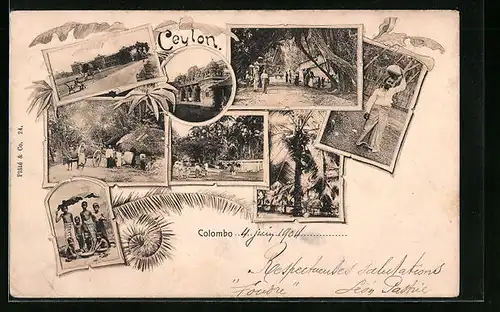 Ceylon.
Plâté & Co. 24.
Colombo 4 juin 1904
Respectueuses salutations
"Foudre" Léon